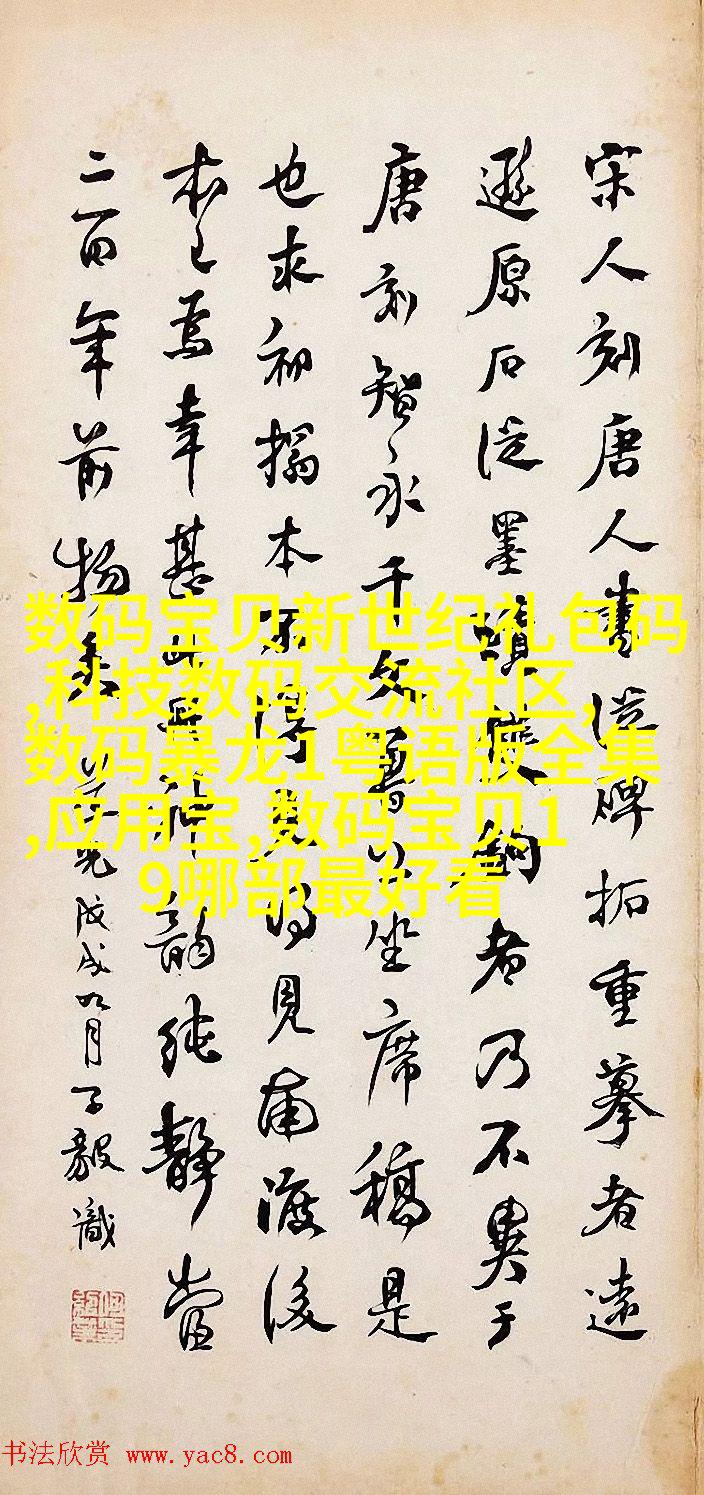 宋人刻唐人書從碑拓重摹者遠
遜原石從墨蹟雙鉤者乃不異于
唐刻智永千文曾以坐席稿是
也求初搨本不得見得見南渡後
本已焉幸甚此冊神韵純静當
二百年前物
光
戊戌九月子毅識
数码宝贝新世纪礼包码
,科技数码交流社区,
数码暴龙1粤语版全集
,应用宝,数码宝贝1
9哪部最好看
书法欣赏 www.yac8.com